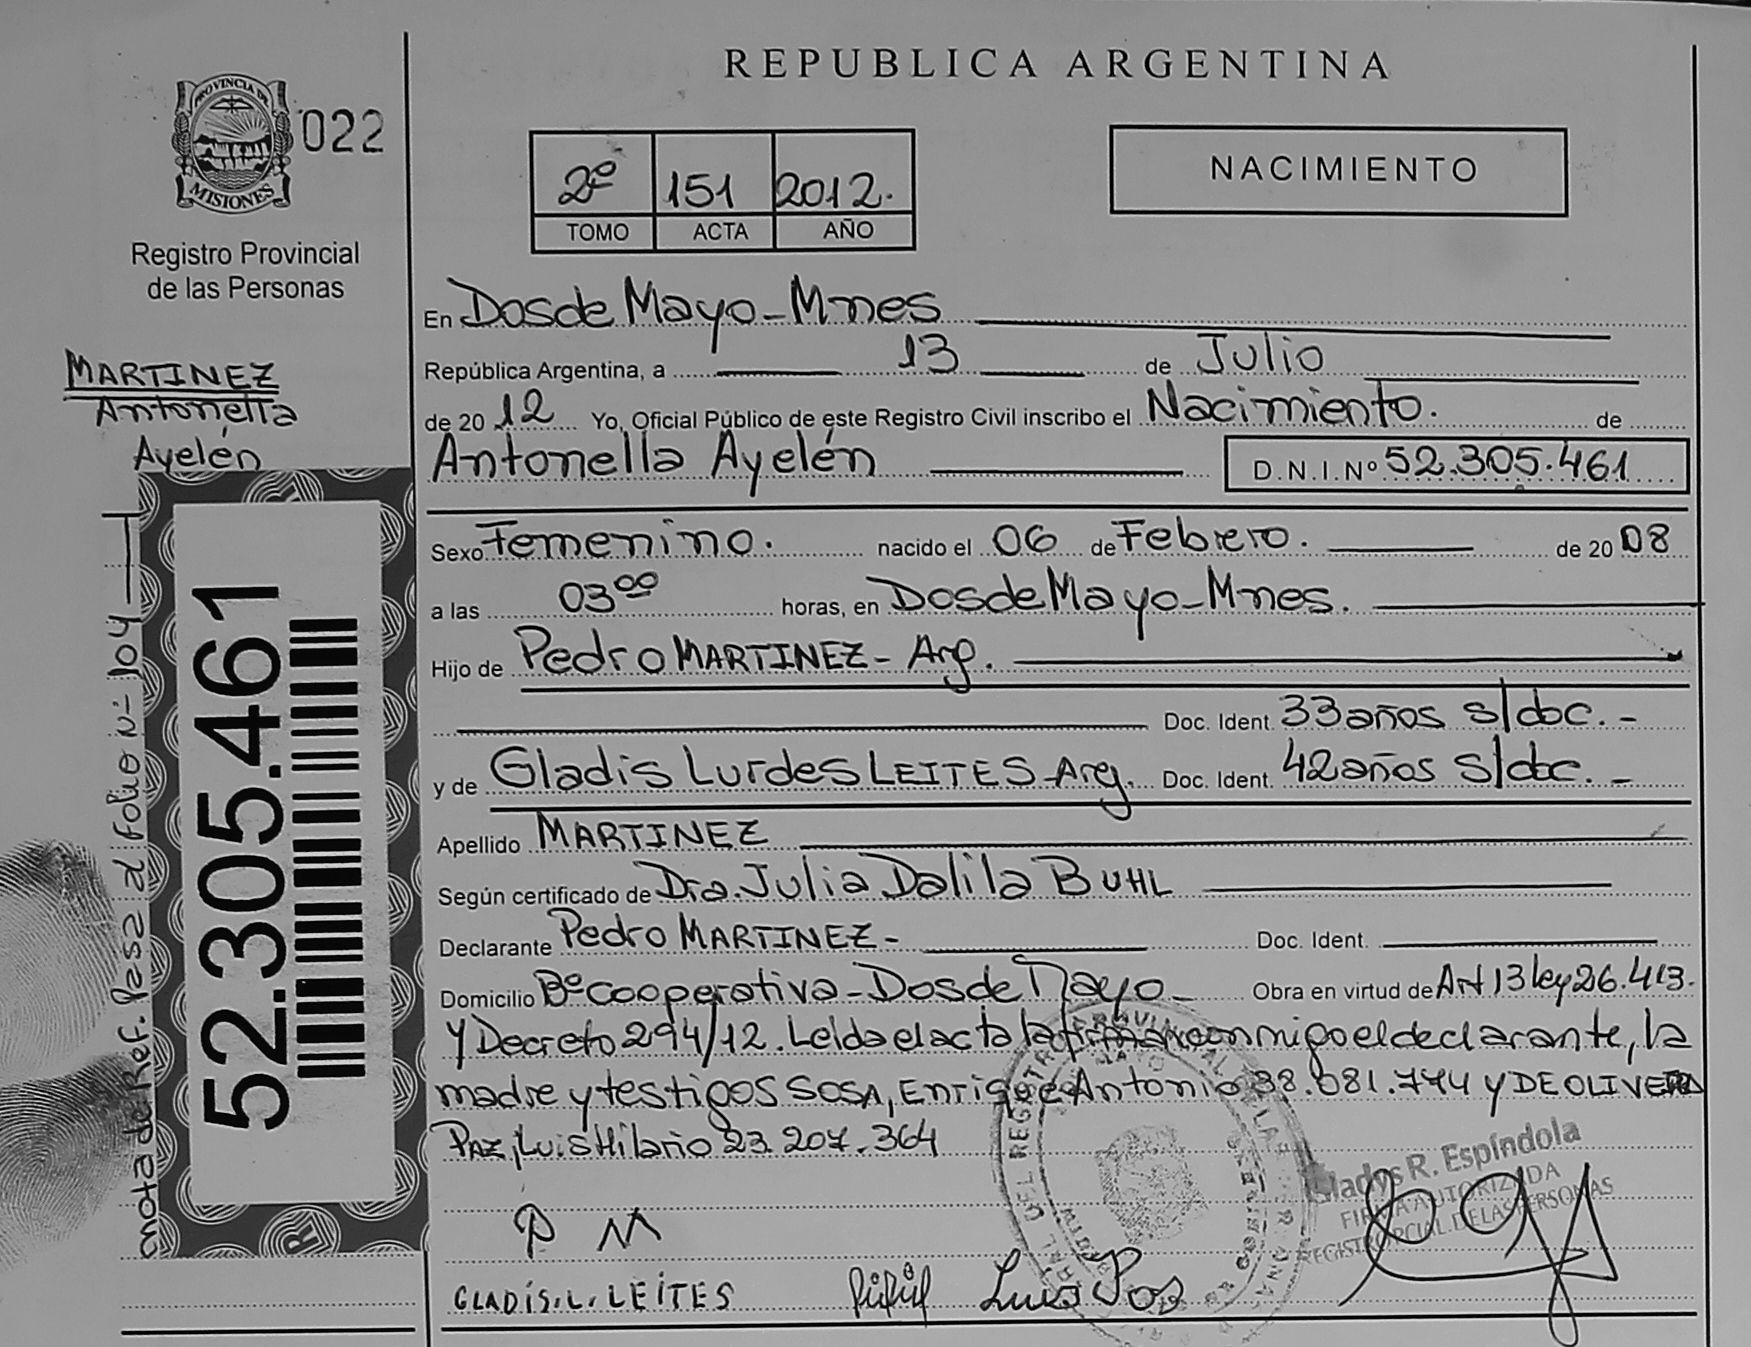 REPUBLICA ARGENTINA
PROVINCIA DE
MISIONES
022
Registro Provincial
de las Personas
2º 151 2012.
TOMO ACTA AÑO
NACIMIENTO
MARTINEZ
Antonella
Ayelén
nota de Ref. Pasa al folio Nº 104
52.305.461
En Dos de Mayo - Mnes
República Argentina, a 13 de Julio
de 20 12 Yo, Oficial Público de este Registro Civil inscribo el Nacimiento. de
Antonella Ayelén D.N.I. Nº 52.305.461
Sexo Femenino. nacido el 06 de Febrero. de 20 08
a las 03 00 horas, en Dos de Mayo - Mnes.
Hijo de Pedro MARTINEZ - Arg.
Doc. Ident. 33 años s/doc. -
y de Gladis Lurdes LEITES Arg. Doc. Ident. 42 años s/doc. -
Apellido MARTINEZ
Según certificado de Dra. Julia Dalila BUHL
Declarante Pedro MARTINEZ - Doc. Ident.
Domicilio Bº Cooperativa - Dos de Mayo - Obra en virtud de Art 13 ley 26.413.
Y Decreto 294/12. Leída el acta la firman conmigo el declarante, la
madre y testigos SOSA, Enrique Antonio 38.081.744 y DE OLIVERA
PAZ, Luis Hilario 23.207.364
P M
GLADIS. L. LEITES
Gladys R. Espíndola
FIRMA AUTORIZADA
REGISTRO PCIAL. DE LAS PERSONAS